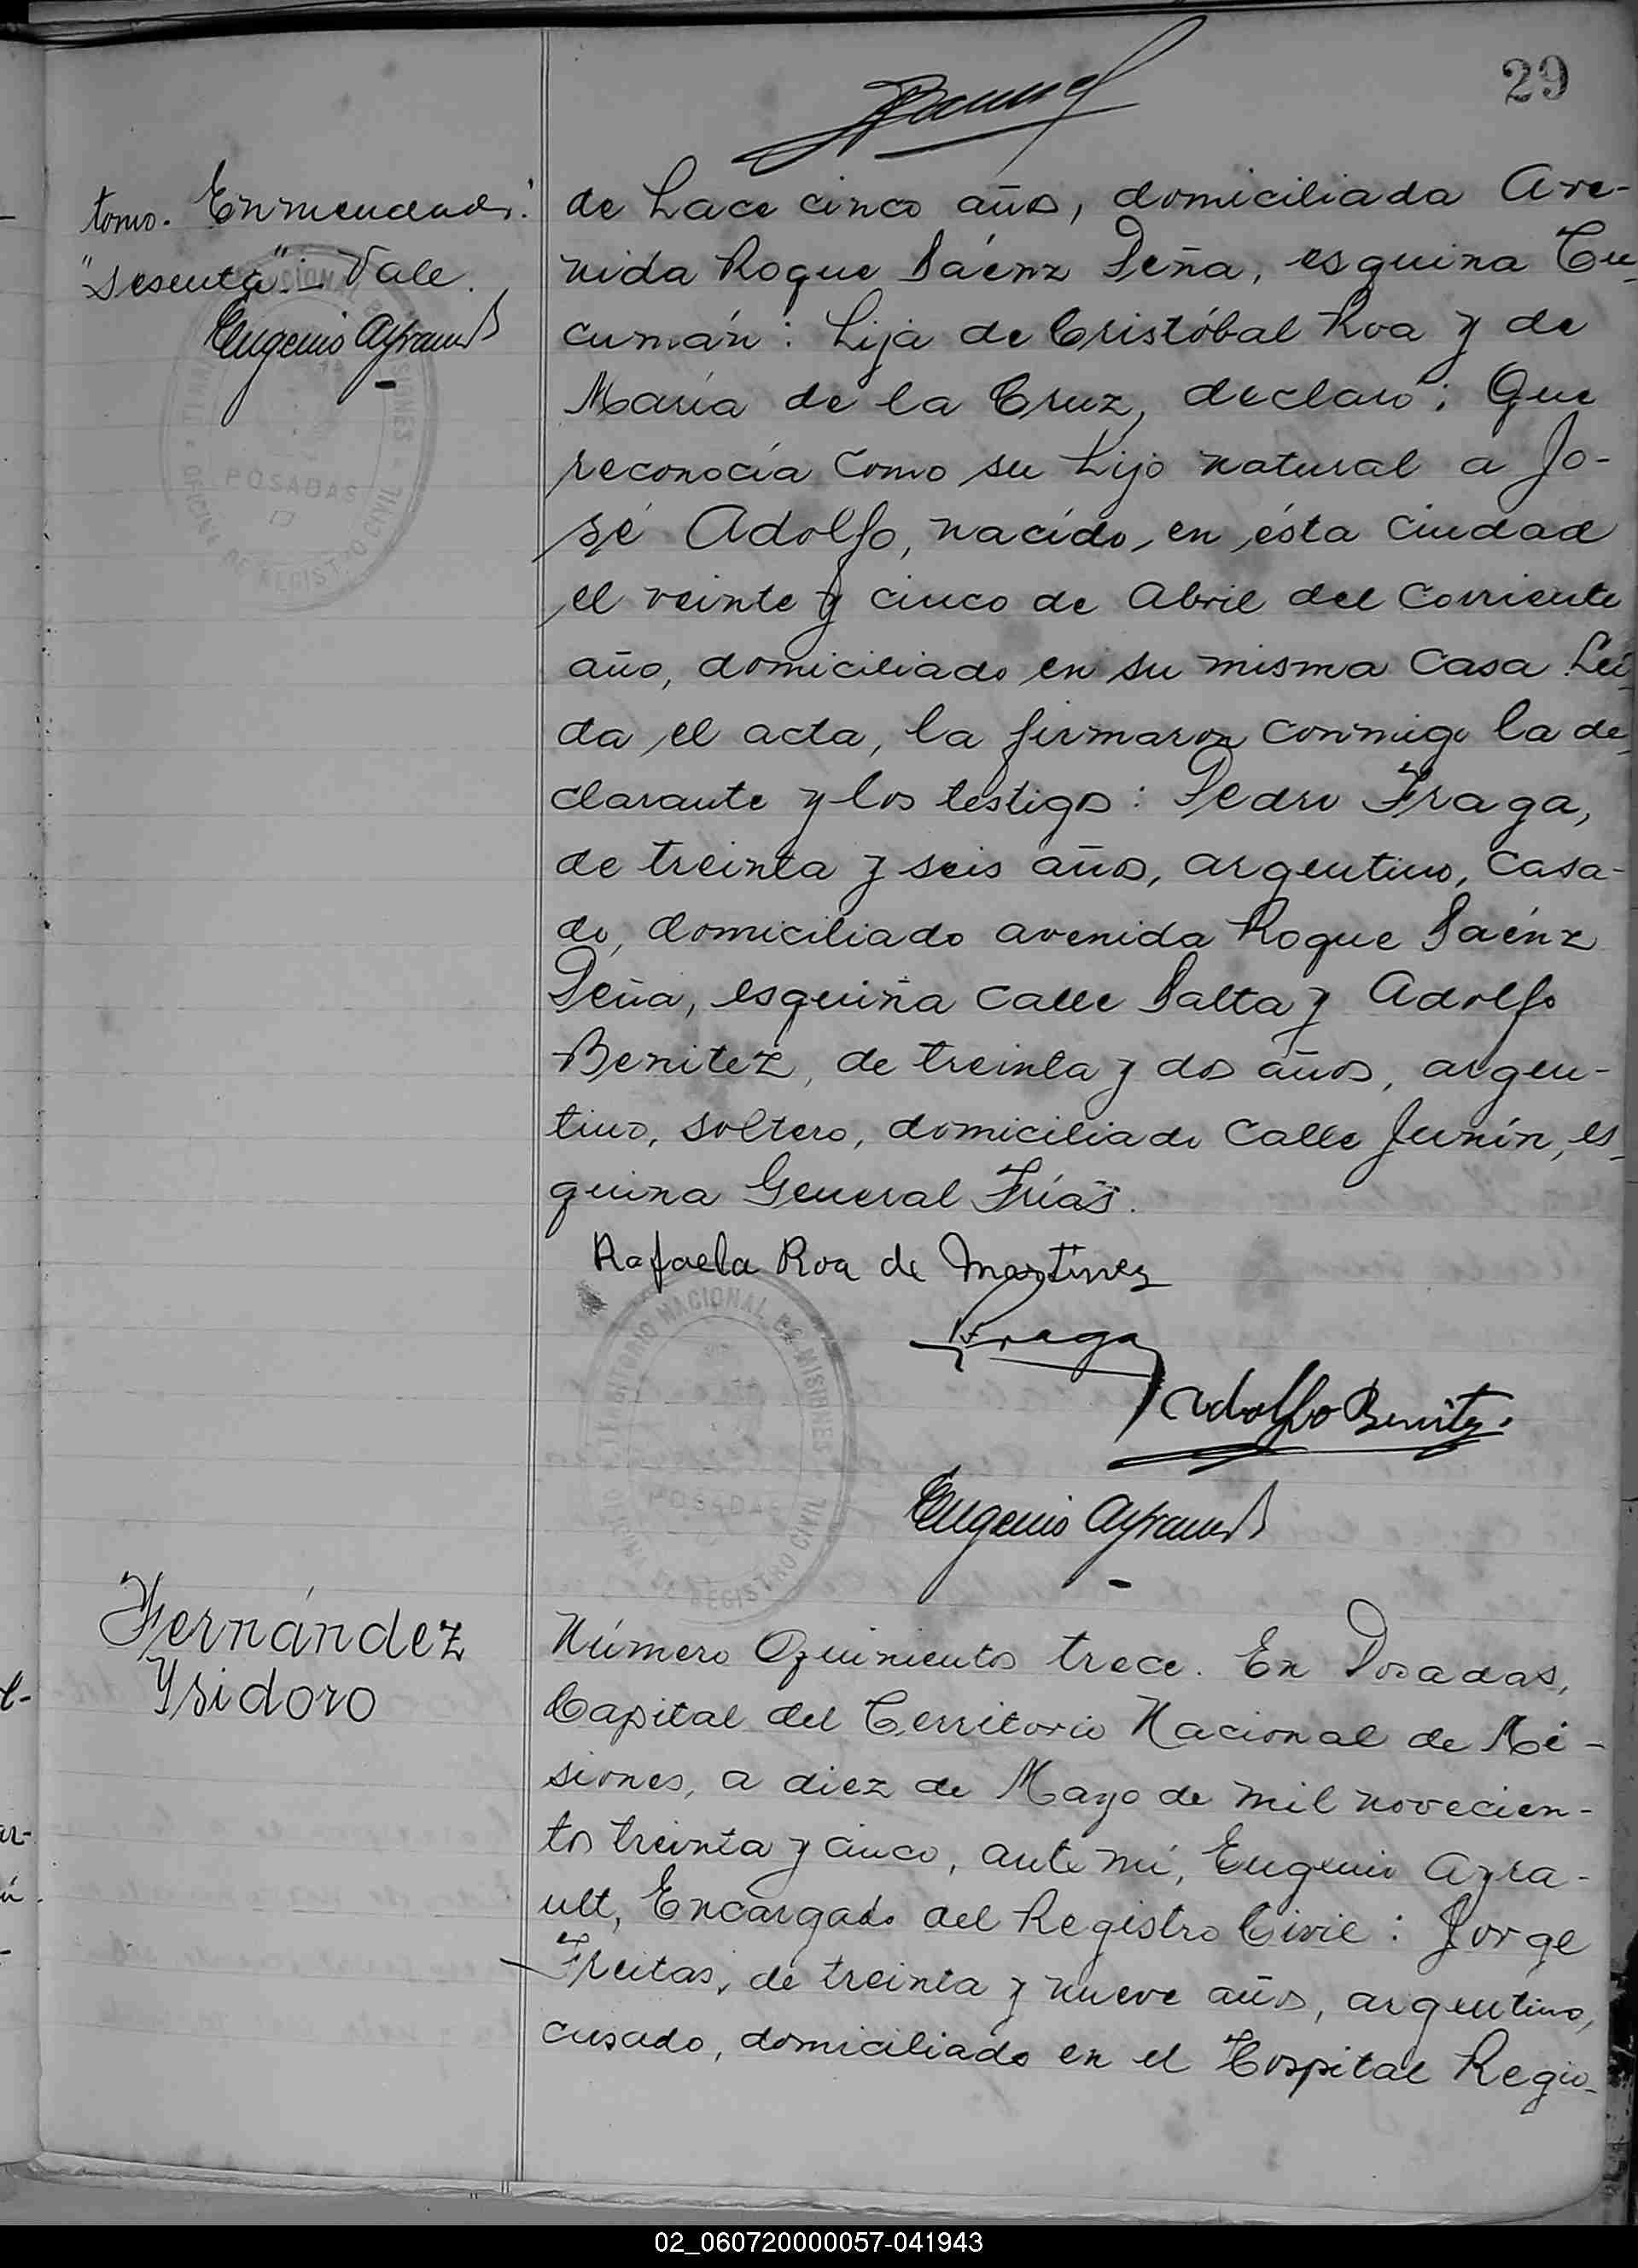 29
tomo. Enmendado:
"sesenta": Vale.
Eugenio Ayrault
TERRITORIO NACIONAL DE MISIONES
POSADAS
OFICINA DE REGISTRO CIVIL
de hace cinco años, domiciliada Ave-
nida Roque Sáenz Peña, esquina Tu-
cumán: hija de Cristóbal Roa y de
María de la Cruz, declaró: Que
reconocía como su hijo natural a Jo-
sé Adolfo, nacido, en ésta ciudad
el veinte y cinco de Abril del corriente
año, domiciliado en su misma casa. Leí-
da el acta, la firmaron conmigo la de-
clarante y los testigos: Pedro Fraga,
de treinta y seis años, argentino, casa-
do, domiciliado avenida Roque Saénz
Peña, esquina calle Salta y Adolfo
Benitez, de treinta y dos años, argen-
tino, soltero, domiciliado calle Junín, es-
quina General Frías.
Rafaela Roa de Martínez
Fraga
Adolfo Benitez.
TERRITORIO NACIONAL DE MISIONES
POSADAS
OFICINA DE REGISTRO CIVIL
Eugenio Ayrault
Fernández
Ysidoro
Número Quinientos trece. En Posadas,
Capital del Territorio Nacional de Mi-
siones, a diez de Mayo de mil novecien-
tos treinta y cinco, ante mí, Eugenio Ayra-
ult, Encargado del Registro Civil: Jorge
Freitas, de treinta y nueve años, argentino,
casado, domiciliado en el Hospital Regio-
02_060720000057-041943